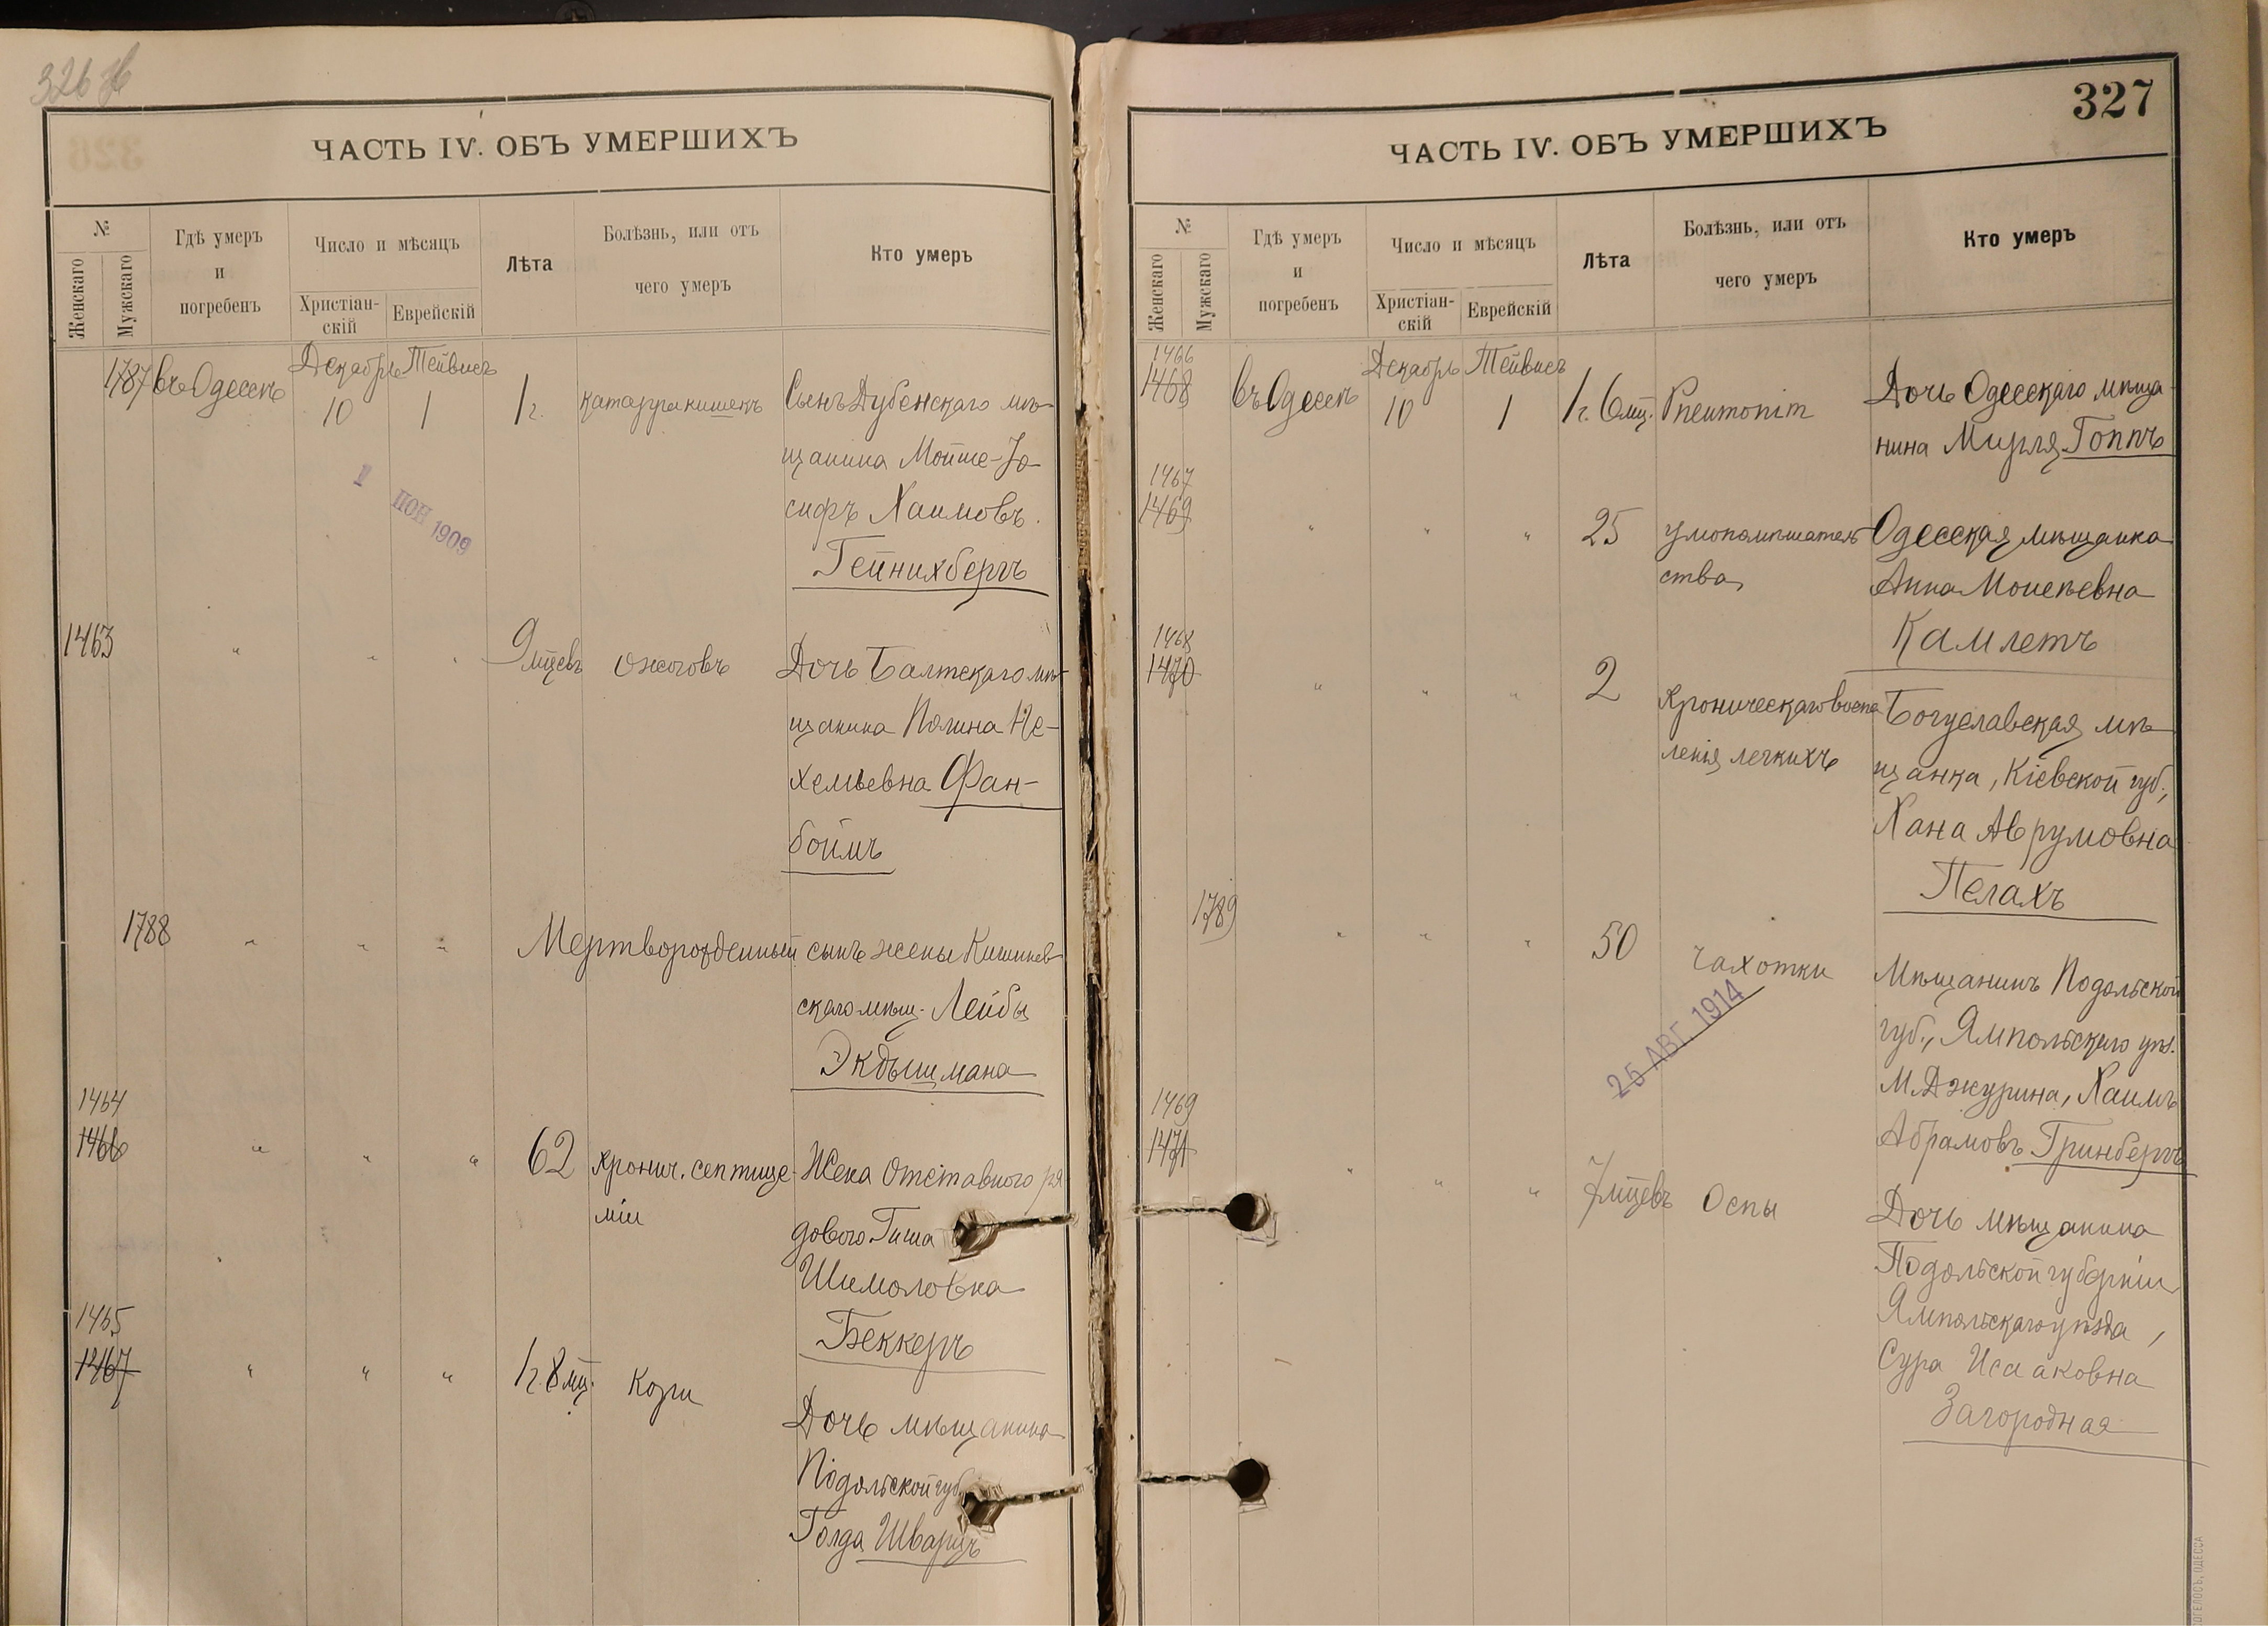 326 об
ЧАСТЬ IV. ОБЪ УМЕРШИХЪ
№
Женскаго
Мужскаго
Гдѣ умеръ
и
погребенъ
Число и мѣсяцъ
Христіан-
скій
Еврейскій
Лѣта
Болѣзнь, или отъ
чего умеръ
Кто умеръ
Декабрь Тейвисъ
1787 въ Одессѣ 10 1 1 г. катарра кишекъ Сынъ Дубенскаго мѣ-
щанина Мойше-Іо-
сифъ Хаимовъ
Гейнихбергъ
1 ІЮН 1909
1463 " " " 9 мцевъ ожоговъ Дочь Балтскаго мѣ-
щанина Полина Не-
хемьевна Фан-
боймъ
1788 " " " Мертворожденный сынъ жены Кишинев
скаго мѣщ. Лейбы
Экдышмана
1464
1466 " " " 62 хронич. септице- Жена Отставного ря
міи
дового Гиша
Шимоловна
Беккеръ
1465
1467 " " " 1 г. 8 мц. Кори
Дочь мѣщанина
Подольской губ.
Голда Шварцъ
327
ЧАСТЬ IV. ОБЪ УМЕРШИХЪ
№
Женскаго
Мужскаго
Гдѣ умеръ
и
погребенъ
Число и мѣсяцъ
Христіан-
скій
Еврейскій
Лѣта
Болѣзнь, или отъ
чего умеръ
Кто умеръ
Декабрь Тейвисъ
1466
1468 въ Одессѣ 10 1 1 г. 6 мц. Pneumoniт Дочь Одесскаго мѣща-
нина Мирля Гоппъ
1467
1469 " " " 25 умопомѣшатель Одесская мѣщанка
ства Анна Моисѣевна
Камлетъ
1468
1470 " " " 2 хроническаго воспа Богуславская мѣ
ленія легкихъ щанка, Кіевской губ.,
Хана Аврумовна
Пелахъ
1789 " " " 50 чахотки Мѣщанинъ Подольской
губ., Ямпольскаго уѣз.
М. Джурина, Хаимъ
Абрамовъ Гринбергъ
25 АВГ. 1914
1469
1471 " " " 7 мцевъ Оспы Дочь мѣщанина
Подольской губерніи
Ямпольскаго уѣзда,
Сура Исааковна
Загородная